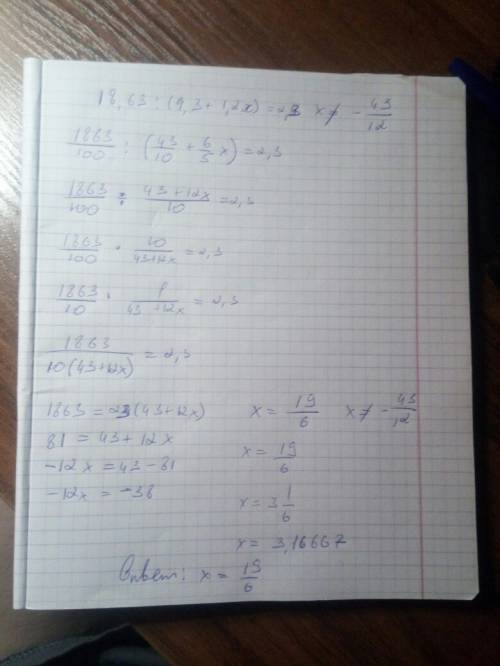 18,63 : (9,3 + 1,2x) = 2,3 x ≠ - 43/12
1863/100 : (43/10 + 6/5 x) = 2,3
1863/100 : 43 + 12x/10 = 2,3
1863/100 · 10/43+12x = 2,3
1863/10 · 1/43 + 12x = 2,3
1863/10(43+12x) = 2,3
1863 = 23(43+12x) x = 19/6 x ≠ - 43/12
81 = 43 + 12x x = 19/6
-12x = 43 - 81
-12x = -38 x = 3 1/6
x = 3,16667
Ответ: x = 19/6